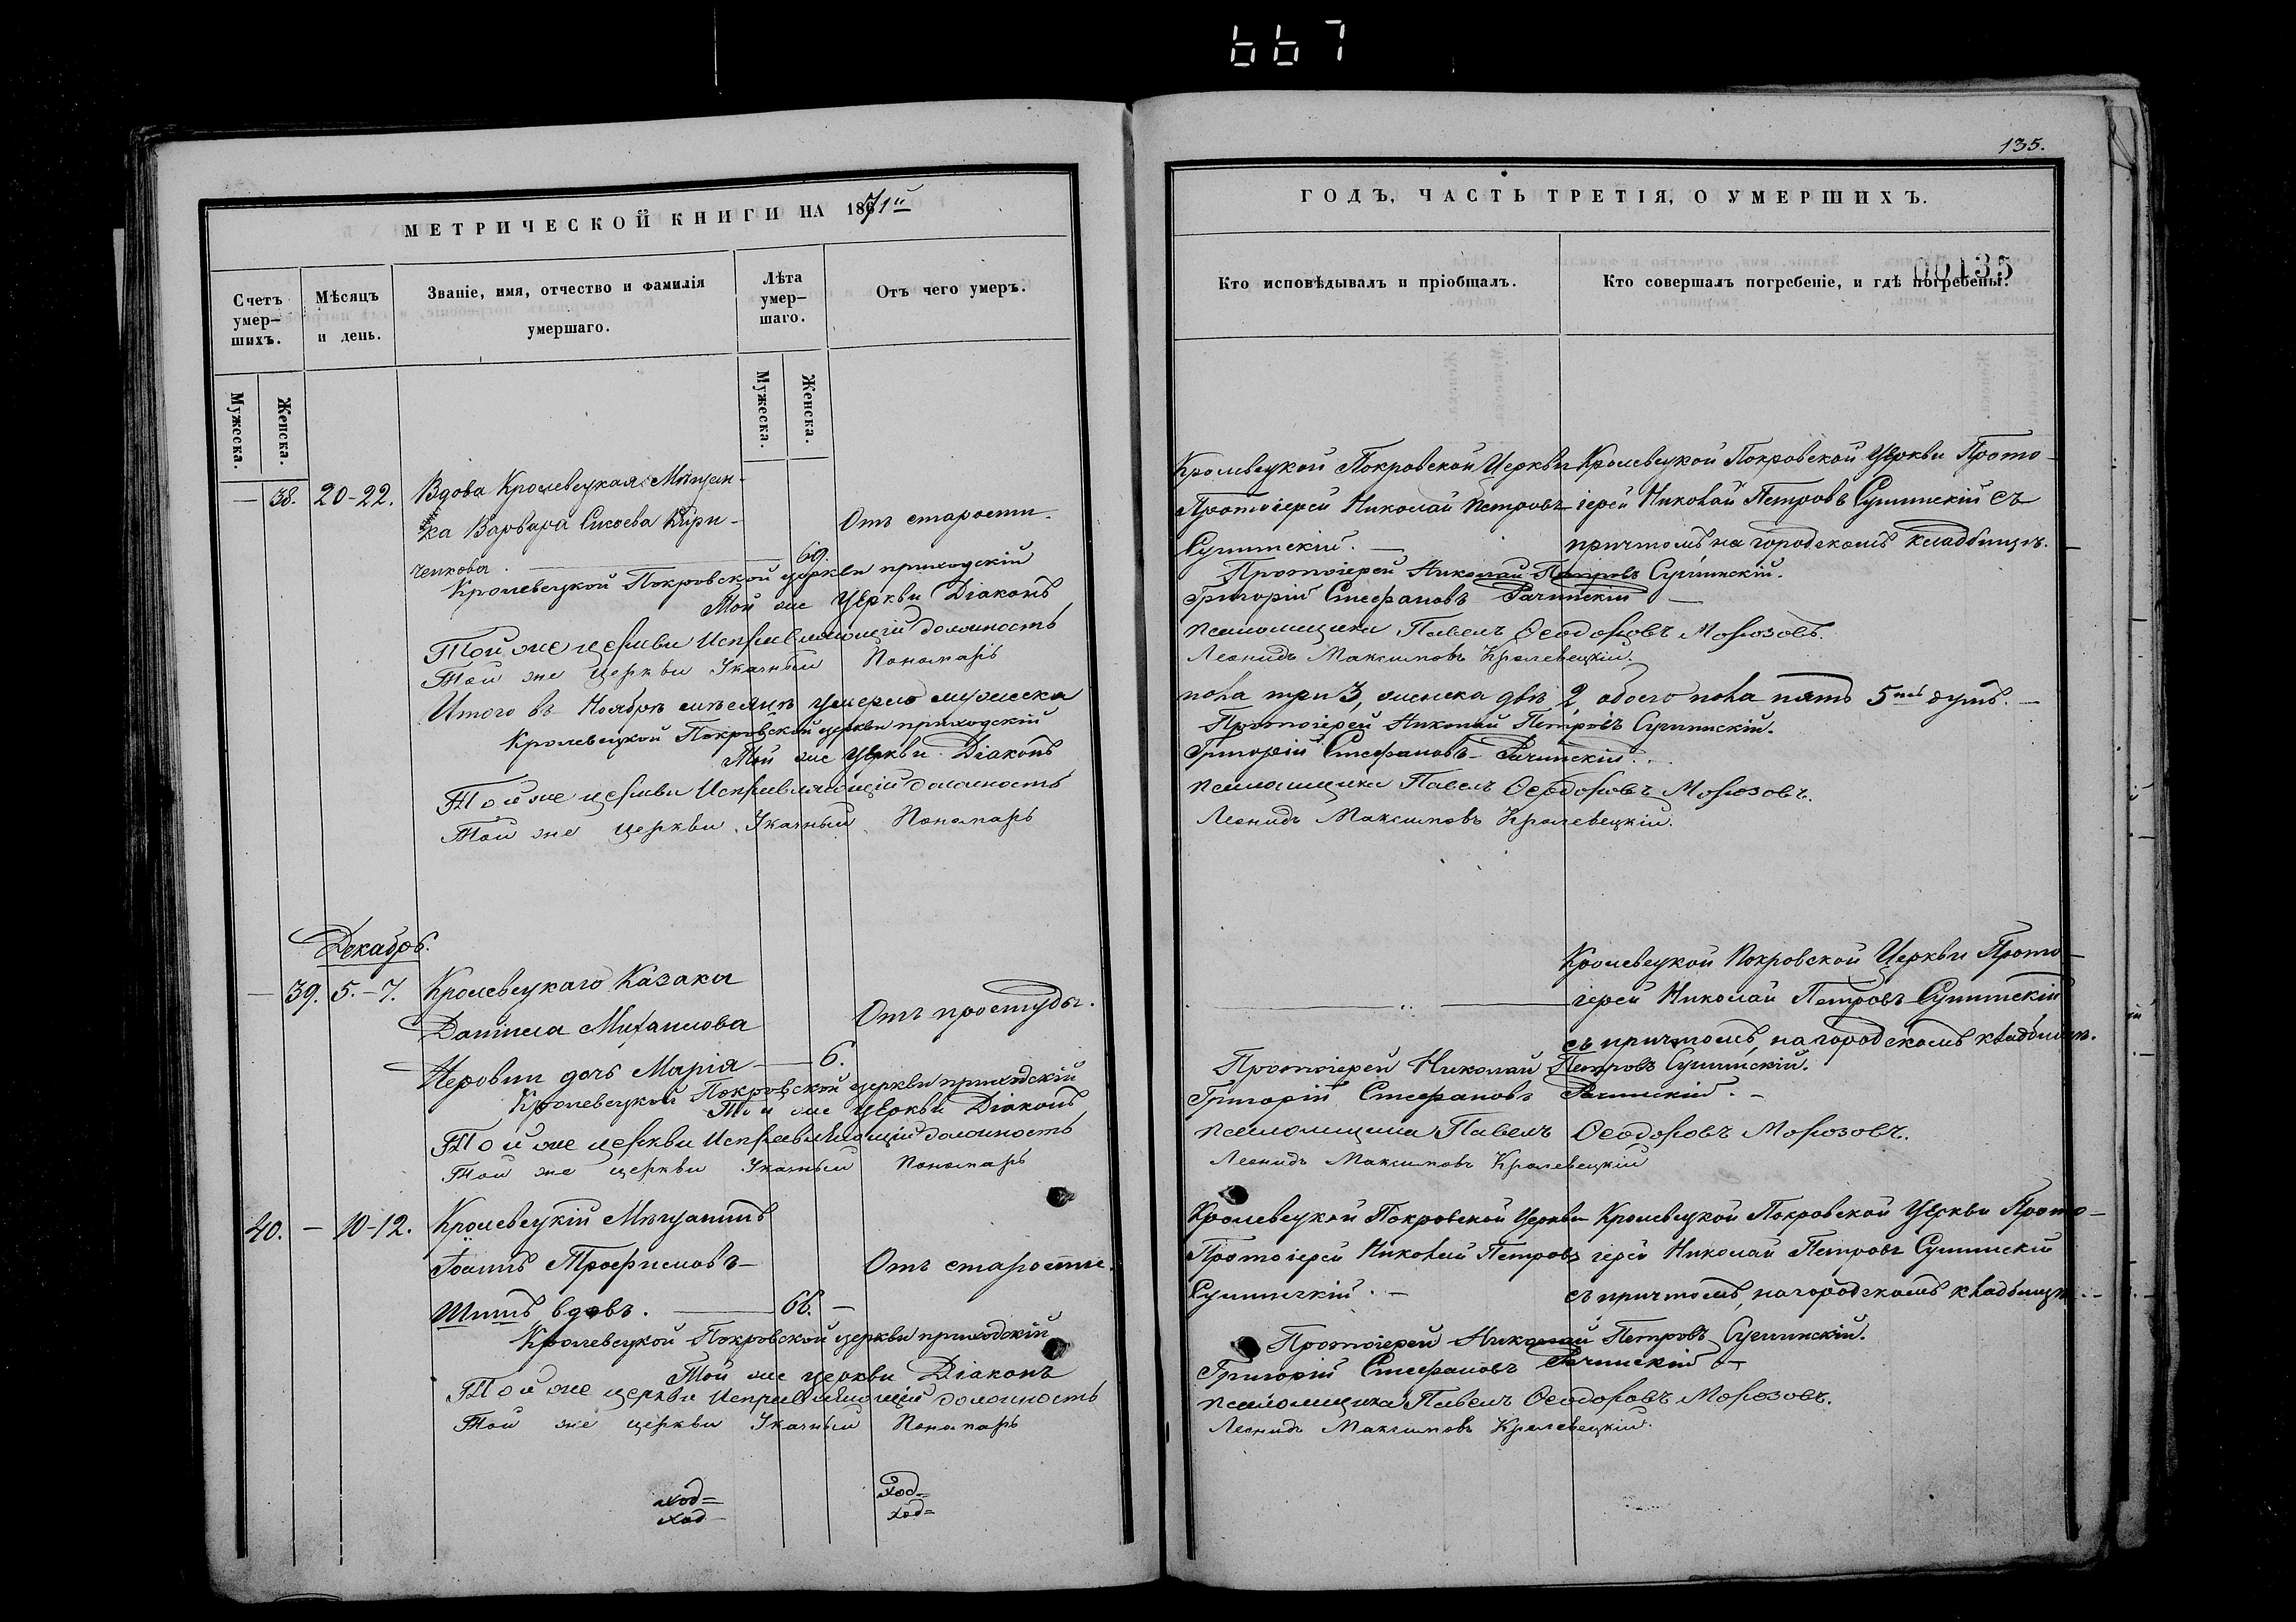 667
МЕТРИЧЕСКОЙ КНИГИ НА 1871й
Счетъ умершихъ.
Мѣсяцъ и день.
Званіе, имя, отчество и фамилія умершаго.
Лѣта умершаго.
Отъ чего умеръ.
Мужеска.
Женска.
Мужеска.
Женска.
— 38. 20-22. Вдова Кролевецкая Мѣщан-
ка Варвара Сисоева Кири-
Отъ старости.
ченкова. — 69
Кролевецкой Покровской церкви приходскій
Той же Церкви Діаконъ
Той же церкви Исправляющій должность
Той же церкви Указный Пономарь
Итого въ Ноябрѣ мѣсяцѣ умерло мужеска
Кролевецкой Покровской церкви приходскій
Той же Церкви Діаконъ
Той же церкви Исправляющій должность
Той же церкви Указный Пономарь
Декабрь.
— 39. 5.-7. Кролевецкаго Казака
Даніила Михаилова
Отъ простуды.
дочь Марія — 6.
Кролевецкой Покровской церкви приходскій
Той же Церкви Діаконъ
Той же церкви Исправляющій должность
Той же церкви Указный Пономарь
40. — 10-12. Кролевецкій Мѣщанинъ
Іоаннъ Трофимовъ
Отъ старости.
вдовъ. — 66. —
Кролевецкой Покровской церкви приходскій
Той же церкви Діаконъ
Той же церкви Исправляющій должность
Той же церкви Указный Пономарь
ход=
ход
ход=
ход=
135.
ГОДЪ, ЧАСТЬ ТРЕТІЯ, О УМЕРШИХЪ.
Кто исповѣдывалъ и пріобщалъ.
Кто совершалъ погребеніе, и гдѣ погребены.
00135
Кролевецкой Покровской Церкви
Протоіерей Николай Петровъ
Сушинскій. —
Кролевецкой Покровской Церкви Прото-
іерей Николай Петровъ Сушинскій съ
причтомъ на городскомъ кладбищѣ.
Протоіерей Николай Петровъ Сушинскій.
Григорій Стефановъ Рачинскій —
псаломщика Павелъ Ѳеодоровъ Морозовъ.
Леонидъ Максимовъ Кролевецкій.
пола три 3, женска двѣ 2 обоего пола пять 5ть душъ. —
Протоіерей Николай Петровъ Сушинскій.
Григорій Стефановъ Рачинскій.
псаломщика Павелъ Ѳеодоровъ Морозовъ.
Леонидъ Максимовъ Кролевецкій.
Кролевецкой Покровской Церкви Прото-
іерей Николай Петровъ Сушинскій
съ причтомъ, на городскомъ кладбищѣ.
Протоіерей Николай Петровъ Сушинскій.
Григорій Стефановъ Рачинскій. —
псаломщика Павелъ Ѳеодоровъ Морозовъ.
Леонидъ Максимовъ Кролевецкій
Кролевецкой Покровской Церкви
Протоіерей Николай Петровъ
Сушинскій. —
Кролевецкой Покровской Церкви Прото-
іерей Николай Петровъ Сушинскій
съ причтомъ, на городскомъ кладбищѣ. —
Протоіерей Николай Петровъ Сушинскій.
Григорій Стефановъ Рачинскій —
псаломщика Павелъ Ѳеодоровъ Морозовъ.
Леонидъ Максимовъ Кролевецкій.